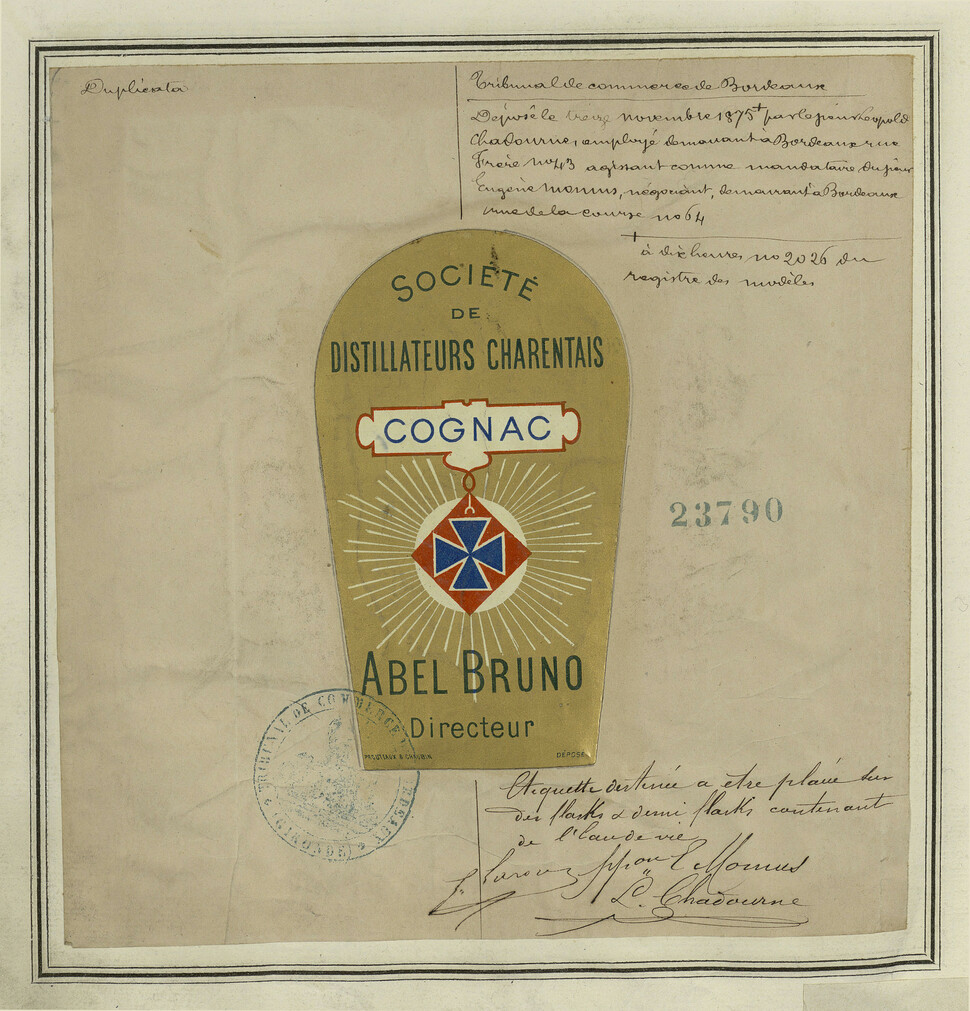 Duplicata
Tribunal de commerce de Bordeaux
Déposé le treize novembre 1875 + par le sieur Léopold
Chadourne, employé demeurant à Bordeaux rue
Frère no 43 agissant comme mandataire du sieur
Eugène Momus, négociant, demeurant à Bordeaux
rue de la course no 64
+ à dix heures no 2026 du
registre des modèles
SOCIÉTÉ
DE
DISTILLATEURS CHARENTAIS
COGNAC
23790
ABEL BRUNO
Directeur
DÉPOSÉ
TRIBUNAL DE COMMERCE DE BORDEAUX
(GIRONDE)
Etiquette destinée a être placée sur
des flasks & demi flasks contenant
de l'Eau de vie
ppon E Momus
L. Chadourne